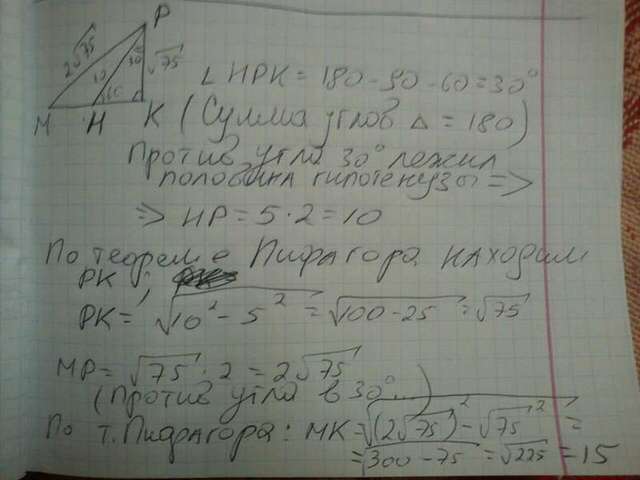 P
2√75
10
30
√75
60
M H K
∠HPK = 180 - 90 - 60 = 30°
(Сумма углов Δ = 180)
Против угла 30° лежит
половина гипотенузы =>
=> HP = 5 · 2 = 10
По теореме Пифагора находим
PK:
PK = √10² - 5² = √100 - 25 = √75
MP = √75 · 2 = 2√75
(Против угла в 30°...)
По т. Пифагора: MK = √(2√75)² - √75² =
= √300 - 75 = √225 = 15